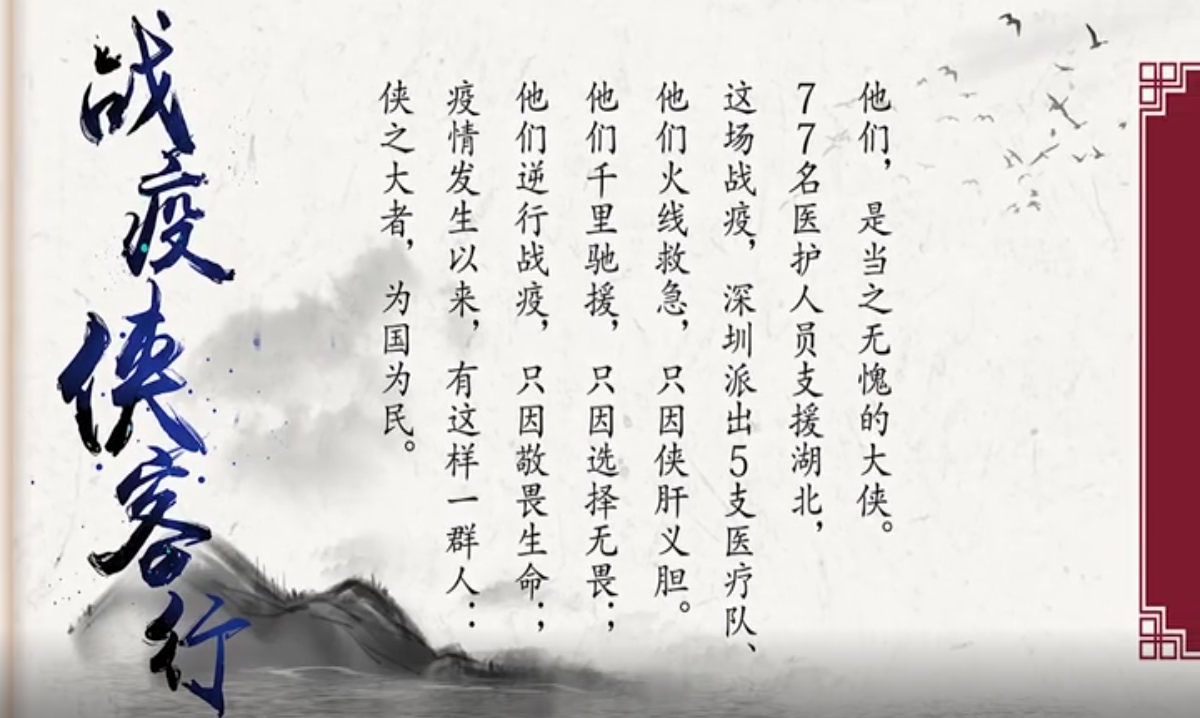 战疫侠客行
侠之大者，为国为民。
疫情发生以来，有这样一群人：
他们逆行战疫，只因敬畏生命；
他们千里驰援，只因选择无畏；
他们火线救急，只因侠肝义胆。
这场战疫，深圳派出5支医疗队、
77名医护人员支援湖北，
他们，是当之无愧的大侠。